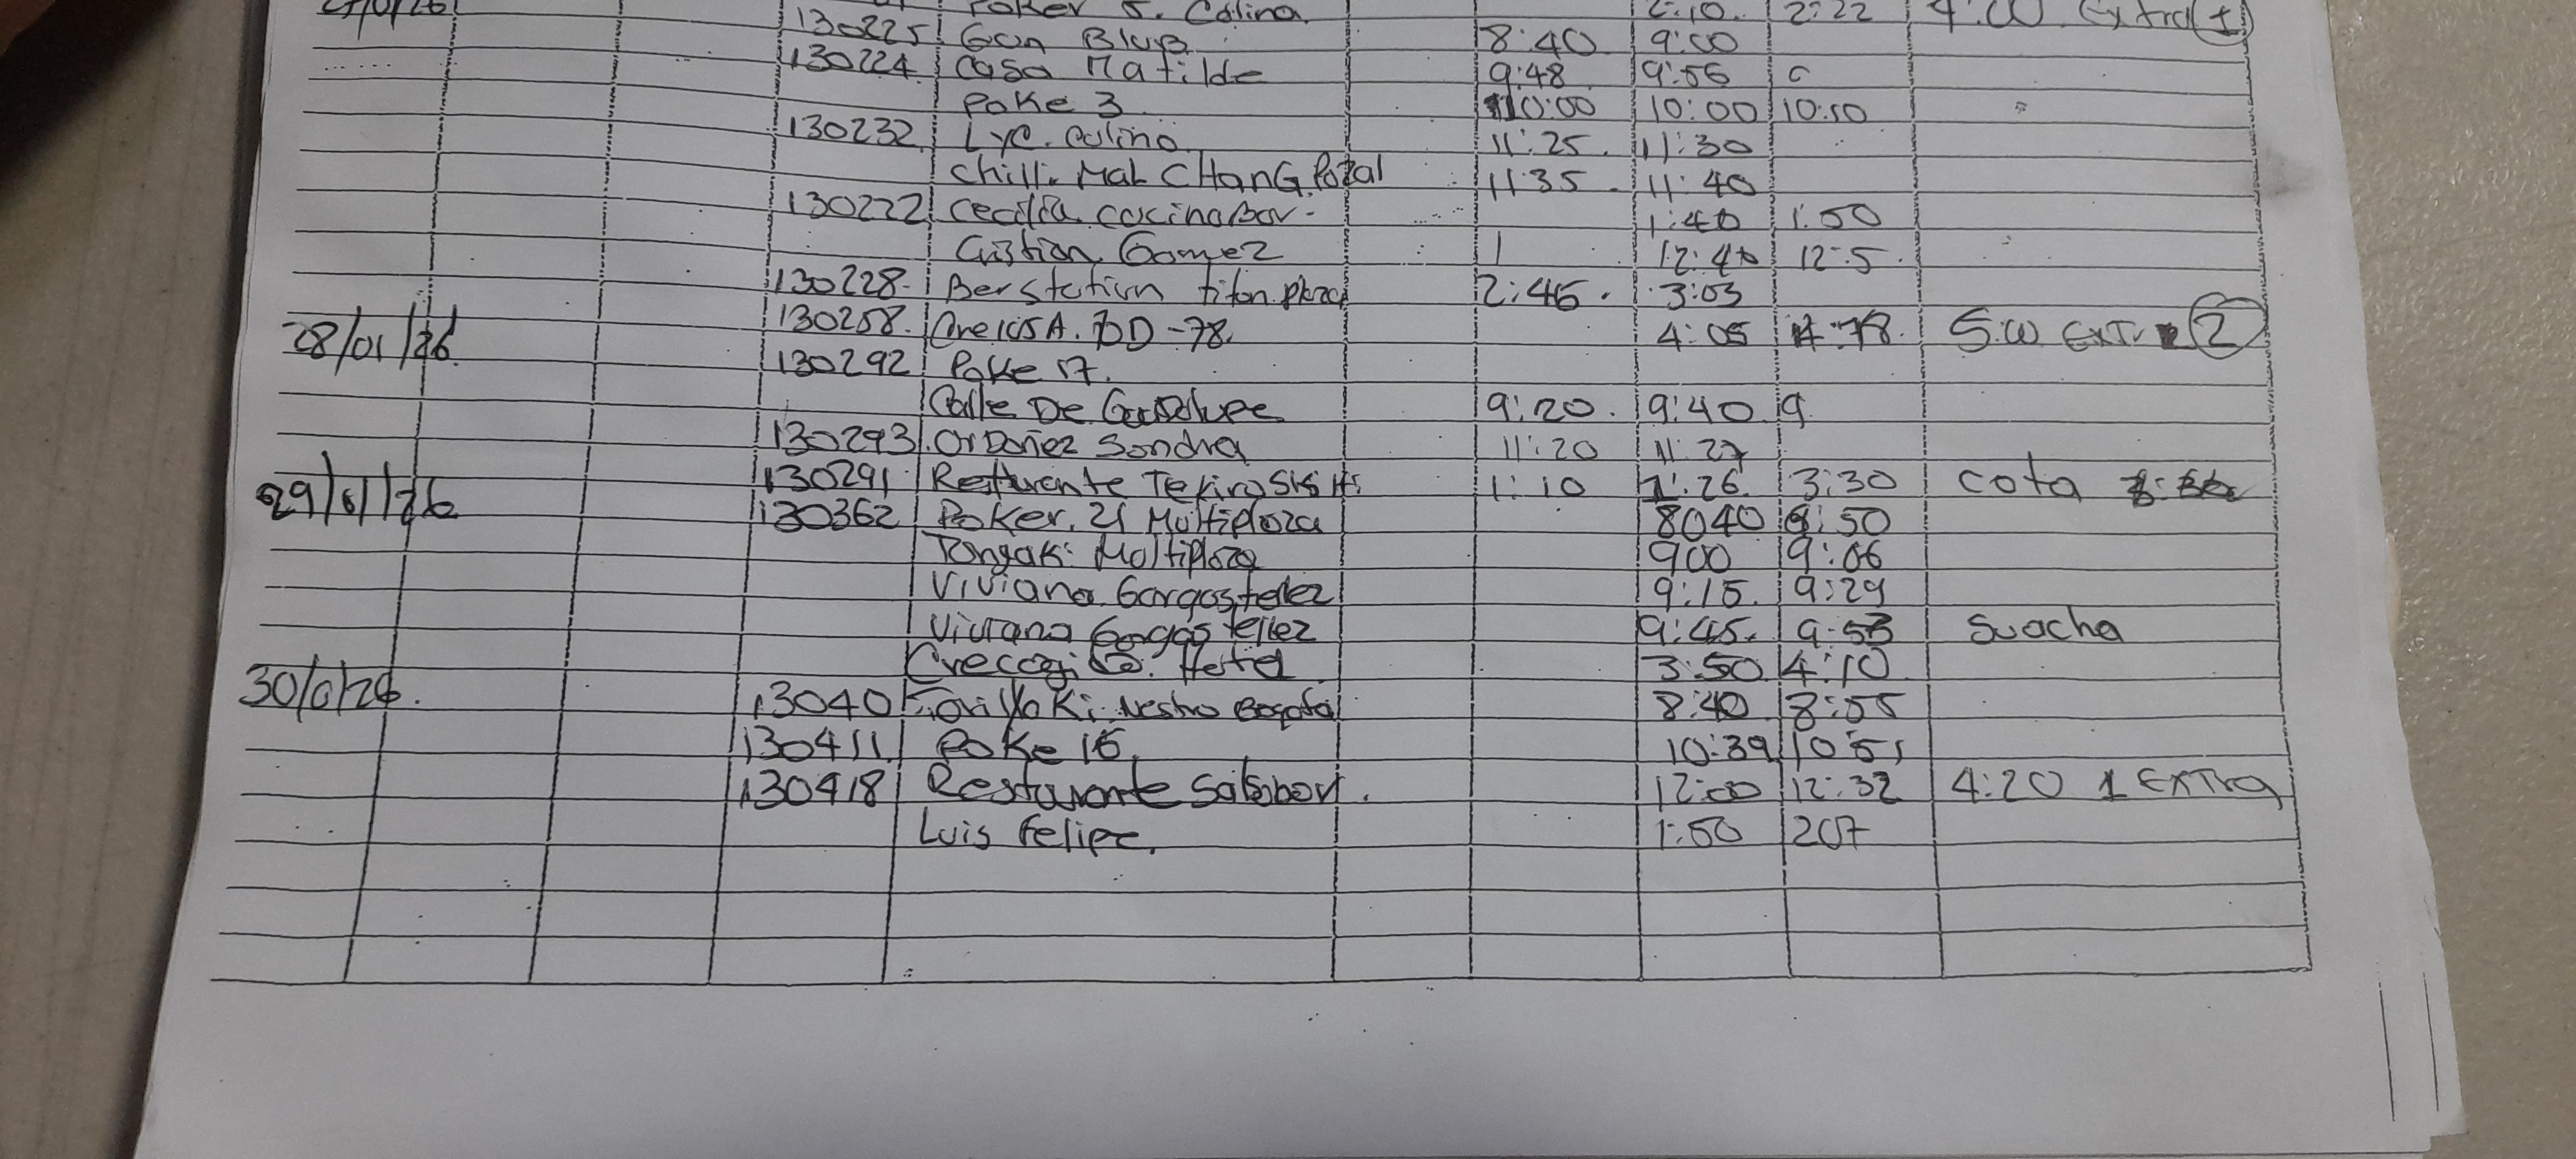 Poker 5. Colina 2:10. 2:22 4:00 Extra 1
130225 Gun 8:40 9:00
130224 Casa Matilde 9:48 9:56
Poke 3 10:00 10:00 10:10
130232 LyC. Colina 11:25. 11:30
Chilli. Mal CHanG. 11:35. 11:40
130222 Cecilia cocina Bar- 1:40 1:50
Cristian Gomez 1 12:40 12:5.
130228. Berstation titan plaza 2:46. 3:03
130258. 4:05 5:00 EXTR 2
28/01/26 130292 Poke 17.
Calle De Guadalupe 9:20. 9:40 9
130293. OrDoñez Sondra 11:20 11:27
130291 1:10 1:26. 3:30 cota
29/1/26 130362 Poker. 21 Multiplaza 8040 9:50
Tanyaki Moltiplaza 900 9:06
Viviana. Gargas tellez 9:15. 9:29
Viviana Gargas tellez 9:45. 9:53 Suacha
3:50 4:10
30/0/26. 13040 8:40 8:55
130411 Poke 16. 10:39 10:51
130418 Restaurante 12:00 12:32 4:20 1 EXTRA
Luis Felipe. 1:50 207